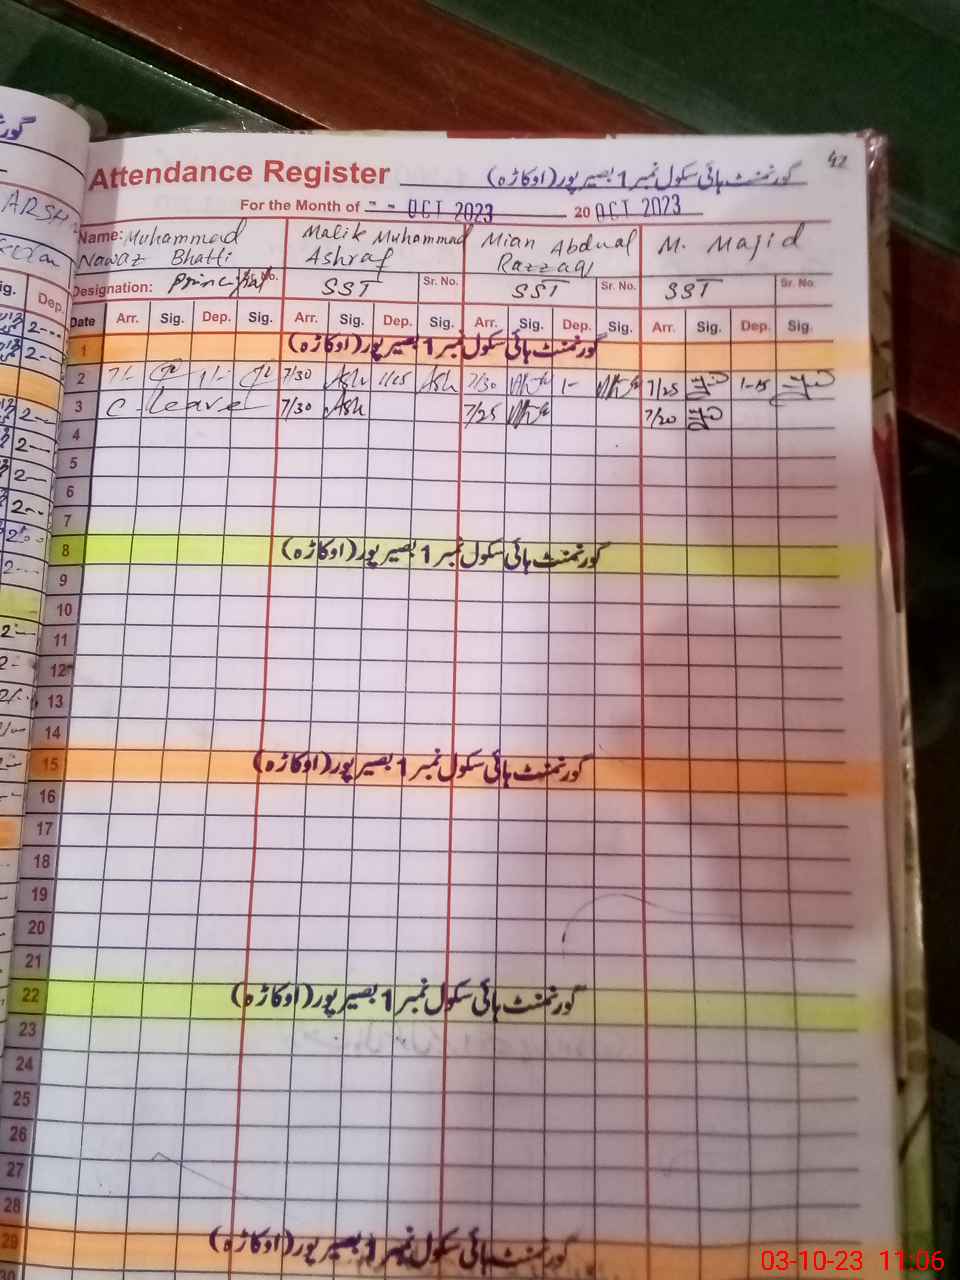 42
Attendance Register گورنمنٹ ہائی سکول نمبر 1 بصیر پور (اوکاڑہ)
For the Month of -- OCT 2023 20 OCT 2023
Name: Muhammad Nawaz Bhatti Malik Muhammad Ashraf Mian Abdual Razzaq M. Majid
Designation: Principal Sr. No. SST Sr. No. SST Sr. No. SST Sr. No.
Date Arr. Sig. Dep. Sig. Arr. Sig. Dep. Sig. Arr. Sig. Dep. Sig. Arr. Sig. Dep. Sig.
1 گورنمنٹ ہائی سکول نمبر 1 بصیر پور (اوکاڑہ)
2 7/- 1/- 7/30 Ash 1/15 Ash 7/30 1- 7/25 1-15
3 C. leave 7/30 Ash 7/25 7/20
4
5
6
7
8 گورنمنٹ ہائی سکول نمبر 1 بصیر پور (اوکاڑہ)
9
10
11
12
13
14
15 گورنمنٹ ہائی سکول نمبر 1 بصیر پور (اوکاڑہ)
16
17
18
19
20
21
22 گورنمنٹ ہائی سکول نمبر 1 بصیر پور (اوکاڑہ)
23
24
25
26
27
28
29 گورنمنٹ ہائی سکول نمبر 1 بصیر پور (اوکاڑہ)
30
03-10-23 11:06